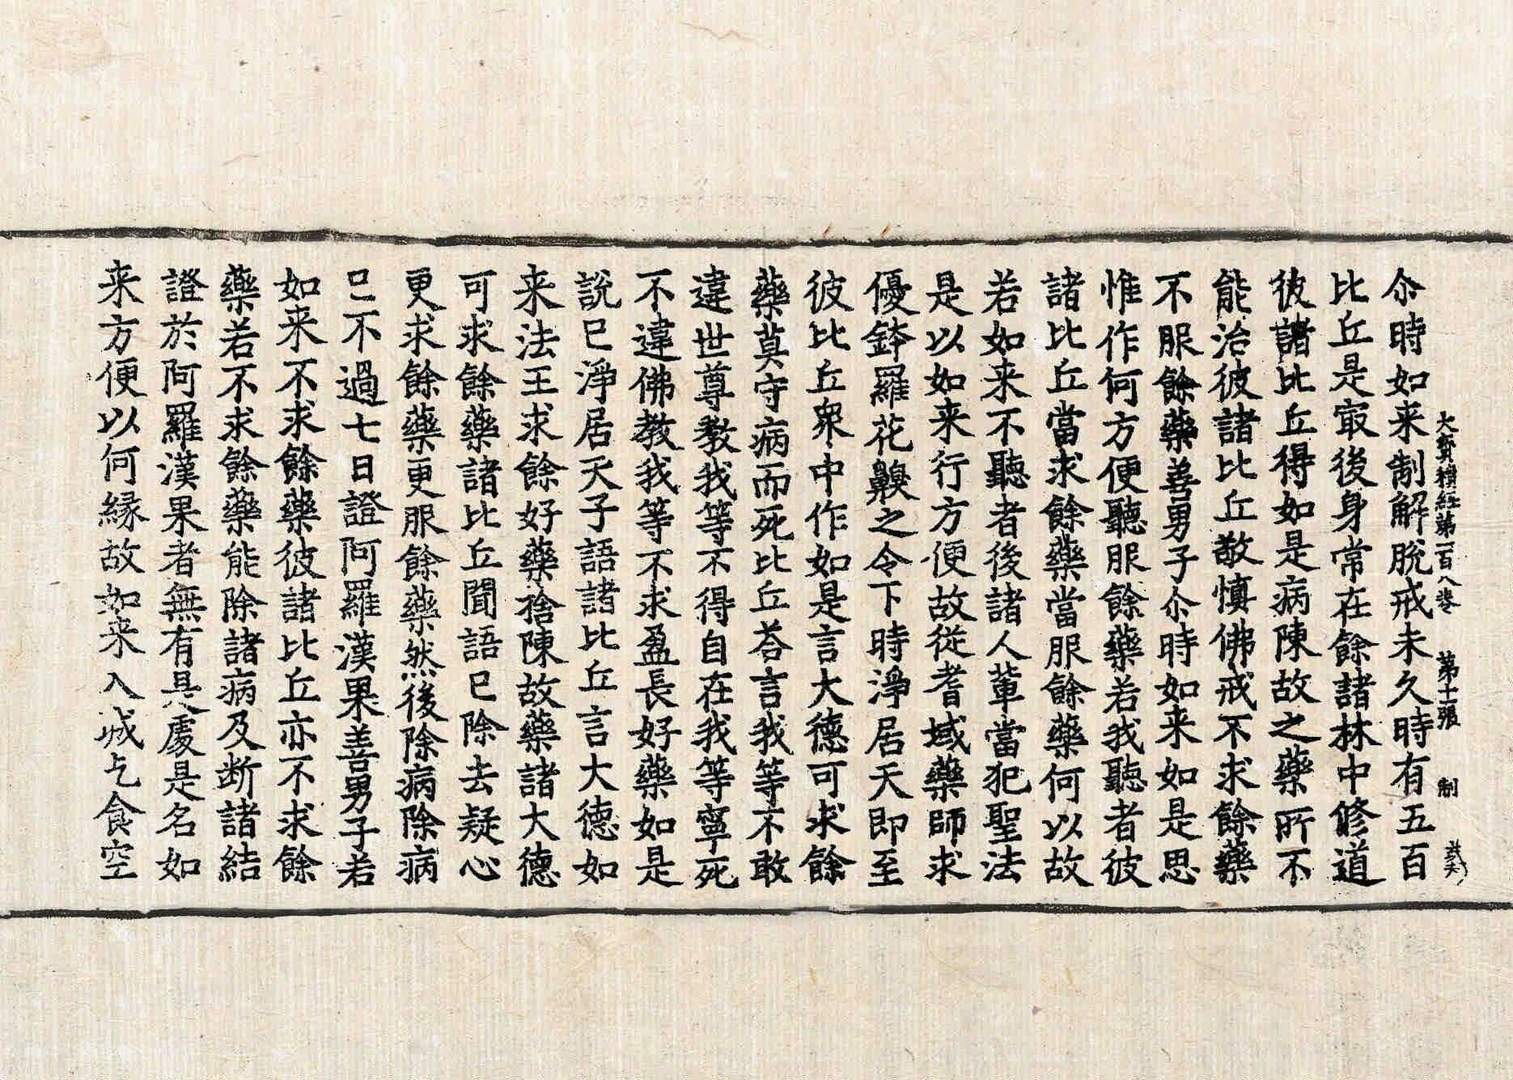 大寶積經第一百八卷 第十一張 制
尒時如来制解脫戒未久時有五百
比丘是㝡後身常在餘諸林中修道
彼諸比丘得如是病陳故之藥所不
能治彼諸比丘敬慎佛戒不求餘藥
不服餘藥善男子尒時如来如是思
惟作何方便聽服餘藥若我聽者彼
諸比丘當求餘藥當服餘藥何以故
若如来不聽者後諸人軰當犯聖法
是以如来行方便故從耆域藥師求
優鉢羅花齅之令下時淨居天即至
彼比丘衆中作如是言大德可求餘
藥莫守病而死比丘荅言我等不敢
違世尊教我等不得自在我等寧死
不違佛教我等不求盈長好藥如是
說已淨居天子語諸比丘言大德如
来法王求餘好藥捨陳故藥諸大德
可求餘藥諸比丘聞語已除去疑心
更求餘藥更服餘藥然後除病除病
已不過七日證阿羅漢果善男子若
如来不求餘藥彼諸比丘亦不求餘
藥若不求餘藥能除諸病及断諸結
證於阿羅漢果者無有是處是名如
来方便以何縁故如来入城乞食空